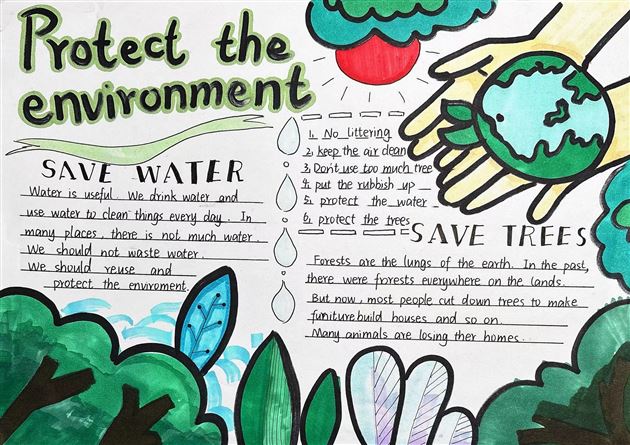 Protect the
environment
SAVE WATER
Water is useful. We drink water and
use water to clean things every day. In
many places, there is not much water.
We should not waste water.
We should reuse and
protect the enviroment.
1. No littering
2. keep the air clean
3. Don't use too much tree
4. put the rubbish up
5. protect the water
6. protect the trees
SAVE TREES
Forests are the lungs of the earth. In the past,
there were forests everywhere on the lands.
But now, most people cut down trees to make
furniture.build houses and so on.
Many animals are losing ther homes.